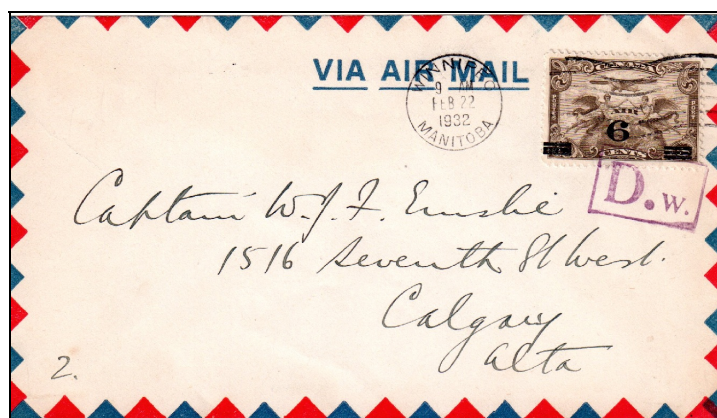 VIA AIR MAIL
WINNIPEG
9 AM
FEB 22
1932
MANITOBA
CANADA
6
CENTS
D.W.
Captain W. J. F. Emslie
1516 Seventh St West.
Calgary
Alta
2.